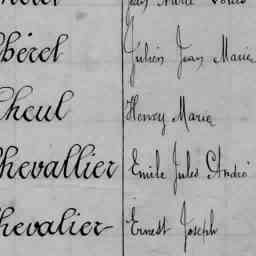 béret Julien Jean Marie
heul Henry Marie
hevallier Emile Jules André
hevalier Ernest Joseph